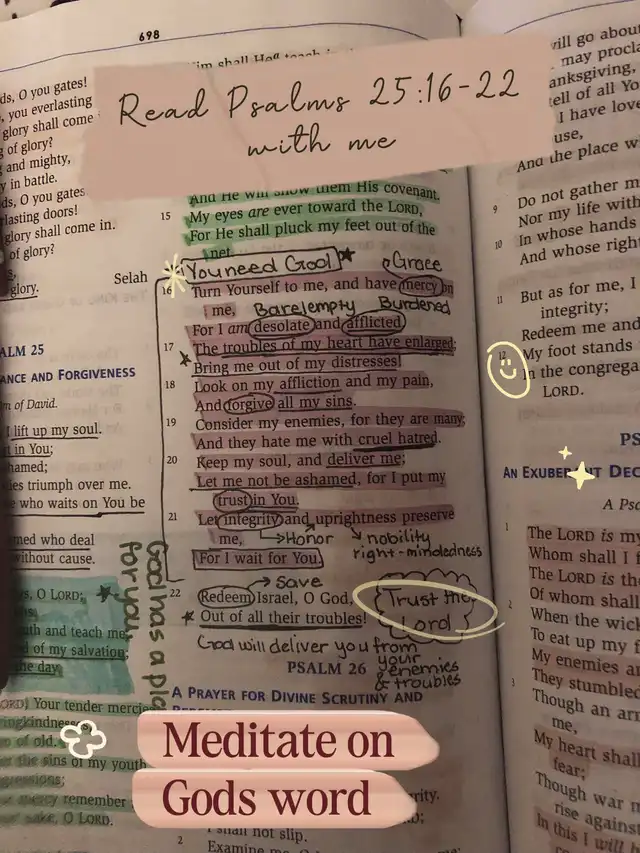 698
ds, O you gates!
you everlasting
glory shall come
of glory?
and mighty,
y in battle.
ds, O you gates
rlasting doors!
glory shall come in.
of glory?
glory.
Selah
ALM 25
ANCE AND FORGIVENESS
m of David.
I lift up my soul.
st in You;
hamed;
ies triumph over me.
e who waits on You be
med who deal
without cause.
O LORD;
uth and teach me,
d of my salvation;
the day.
ORD, Your tender mercies
ingkindnesses,
of old.
er the sins of my youth
gressions;
mercy remember
sake, O LORD.
God has a pla
for you,
Read Psalms 25:16-22
with me
And He will show them His covenant.
15 My eyes are ever toward the LORD,
For He shall pluck my feet out of the
net.
You need God
Grace
16 Turn Yourself to me, and have mercy on
me,
Bare/empty Burdened
For I am desolate and afflicted.
17 The troubles of my heart have enlarged;
Bring me out of my distresses!
18 Look on my affliction and my pain,
And forgive all my sins.
19 Consider my enemies, for they are many;
And they hate me with cruel hatred.
20 Keep my soul, and deliver me;
Let me not be ashamed, for I put my
trust in You.
21 Let integrity and uprightness preserve
me,
Honor
nobility
right-mindedness
For I wait for You.
save
22 Redeem Israel, O God,
Out of all their troubles!
Trust the
Lord
God will deliver you from
your
enemies
& troubles
PSALM 26
A PRAYER FOR DIVINE SCRUTINY AND
Meditate on
Gods word
I shall not slip.
2 Examine me,
will go about
may procla
anksgiving,
tell of all Yo
I have love
use,
And the place w
9 Do not gather m
Nor my life with
10 In whose hands
And whose right
11 But as for me, I
integrity;
Redeem me and
12 My foot stands
In the congrega
LORD.
PS
AN EXUBERANT DEC
A Psa
1 The LORD is my
Whom shall I f
The LORD is th
Of whom shall
2 When the wick
To eat up my f
My enemies an
They stumbled
3 Though an arm
me,
My heart shall
fear;
Though war m
rise against
In this I will b